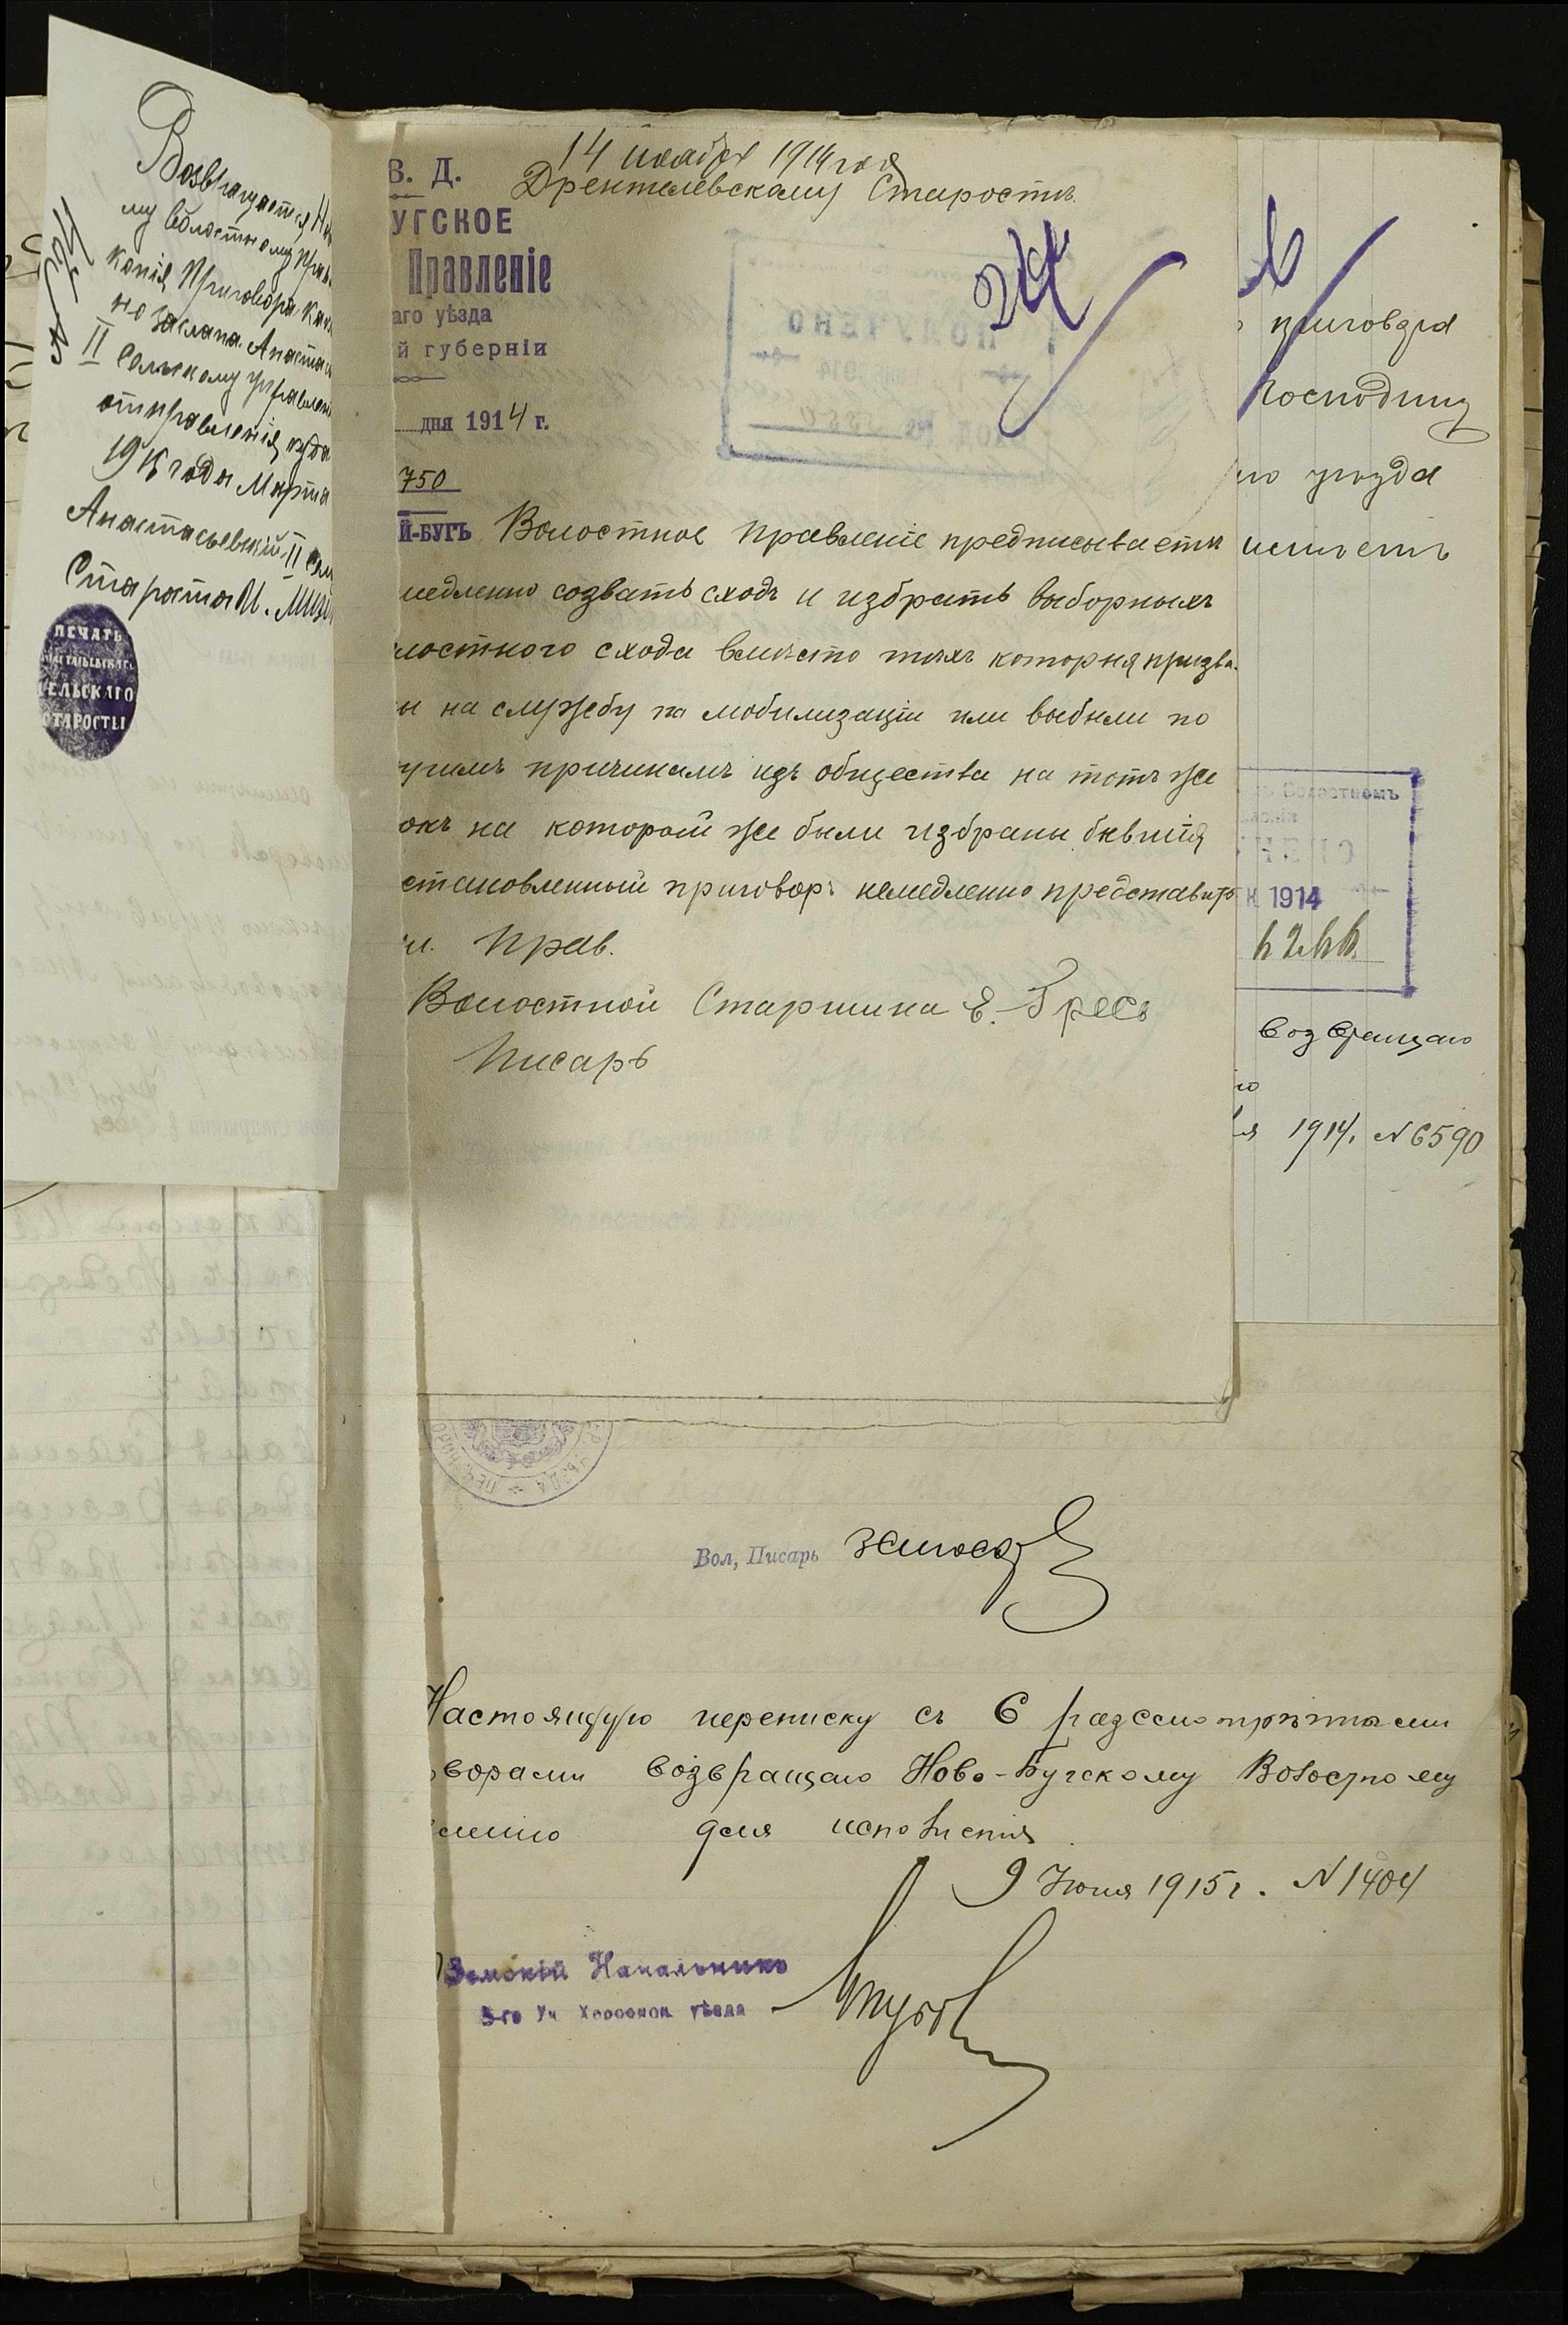 Возвращается Но
му волостному Прав
копія Приговора как
но заслана Анастас
II Сельскому управлен
отправленія куда
1915 года Марта
Анастасьевскій II Сел
Староста И.
ПЕЧАТЬ
СЕЛЬСКАГО
СТАРОСТЫ
14 ноября 1914 года
В. Д. Дрентелевскому Старостѣ.
УГСКОЕ
Правленіе
аго уѣзда
й губерніи
24
дня 1914 г.
750
Й-БУГЪ Волостное Правленіе предписываетъ
медленно созвать сходъ и избрать выборныхъ
лостного схода вмѣсто тѣхъ которыя призва-
ы на службу по мобилизаціи или выбыли по
угимъ причинамъ изъ общества на тотъ же
окъ на который же были избраны бывшія
становленный приговоръ немедленно представить
Прав.
Волостной Старшина Е. Гресь
Писарь
приговора
Господину
го уѣзда
Волостномъ
1914
возвращаю
го
я 1914. N 6590
Вол, Писарь
Настоящую переписку съ 6 разсмотрѣнными
ворами возвращаю Ново-Бугскому Волостному
ленію для исполненія.
9 Іюня 1915 г. N 1404
Земскій Начальникъ
5-го Уч Херсонск уѣзда